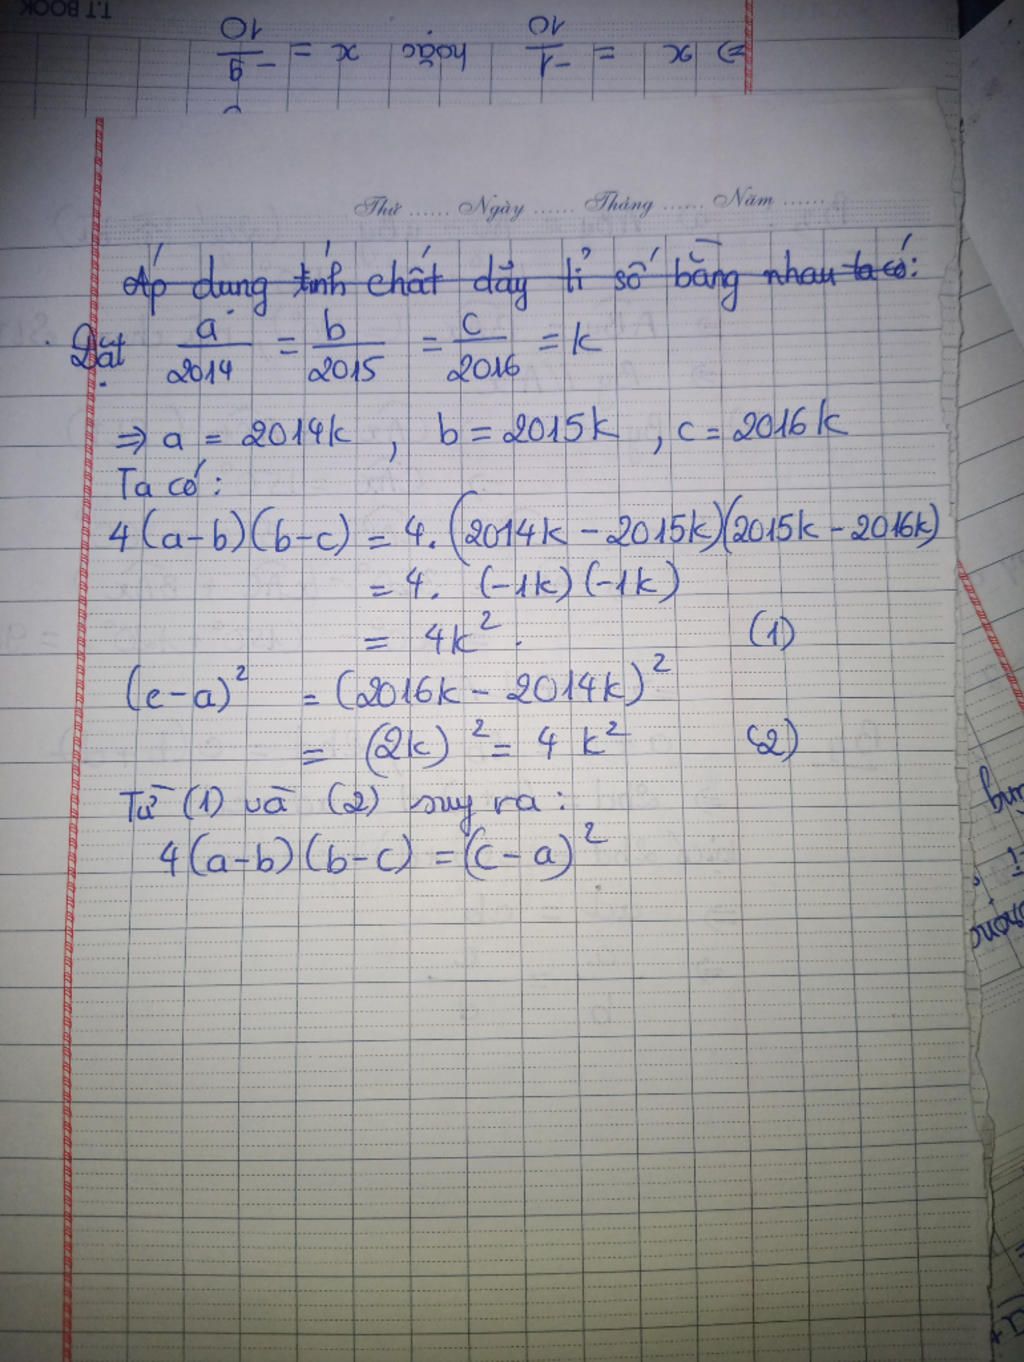 T.T BOOK
⇒ x = -1/10 hoặc x = -9/10
Thứ ...... Ngày ...... Tháng ...... Năm ......
Áp dụng tính chất dãy tỉ số bằng nhau ta có:
Đặt a/2014 = b/2015 = c/2016 = k
⇒ a = 2014k , b = 2015k , c = 2016k
Ta có :
4(a-b)(b-c) = 4. (2014k - 2015k)(2015k - 2016k)
= 4. (-1k)(-1k)
= 4k² . (1)
(c-a)² = (2016k - 2014k)²
= (2k)² = 4k² (2)
Từ (1) và (2) suy ra :
4(a-b)(b-c) = (c-a)²